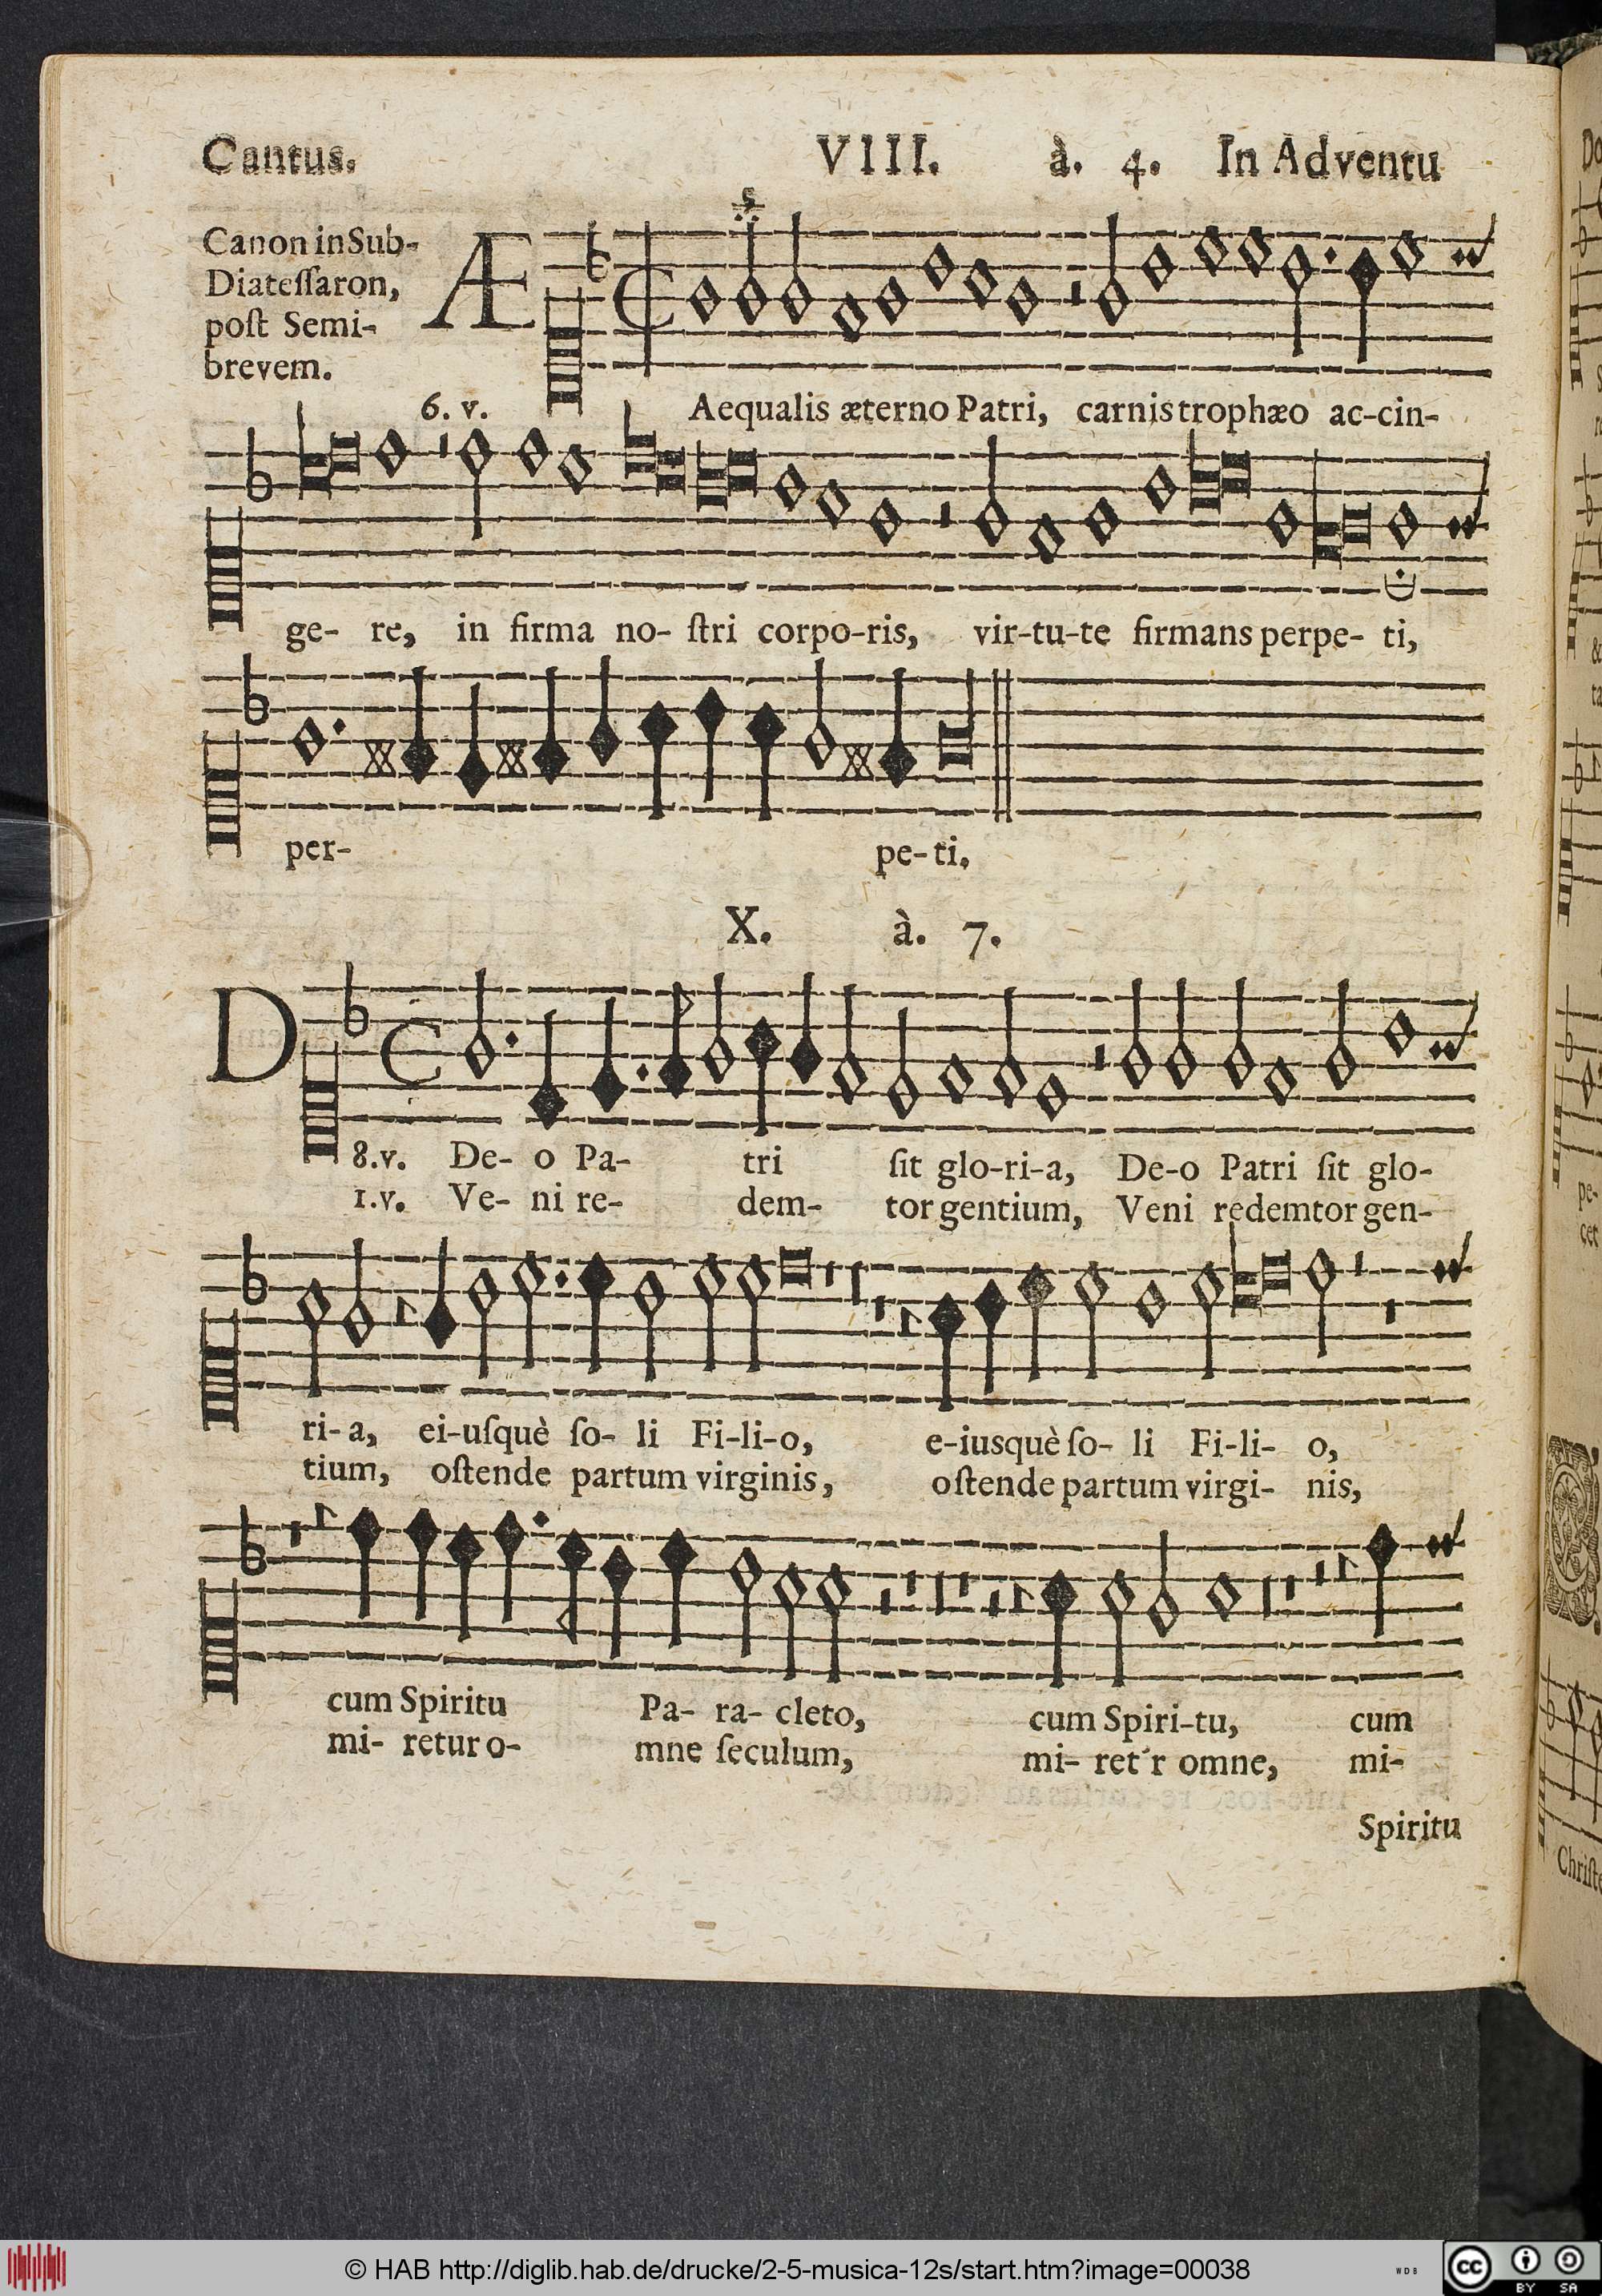 Cantus. VIII. à. 4. In Adventu
Canon in Sub-
Diateſſaron,
poſt Semi-
brevem.
Æ
6. v. Aequalis æterno Patri, carnis trophæo ac-cin-
ge- re, in firma no- ſtri corpo-ris, vir-tu-te firmans perpe- ti,
per- pe-ti.
X. à. 7.
D
8.v. De- o Pa- tri ſit glo-ri-a, De-o Patri ſit glo-
1.v. Ve- ni re- dem- tor gentium, Veni redemtor gen-
ri- a, ei-uſquè ſo- li Fi-li-o, e-iusquè ſo- li Fi-li- o,
tium, oſtende partum virginis, oſtende partum virgi- nis,
cum Spiritu Pa- ra- cleto, cum Spiri-tu, cum
mi- retur o- mne ſeculum, mi- ret'r omne, mi-
Spiritu
© HAB http://diglib.hab.de/drucke/2-5-musica-12s/start.htm?image=00038
WDB
cc BY SA